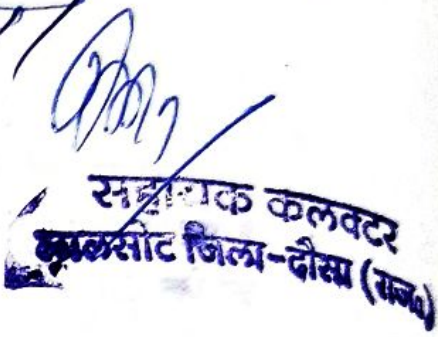 सहायक कलक्टर
लालसोट जिला-दौसा (राज०)